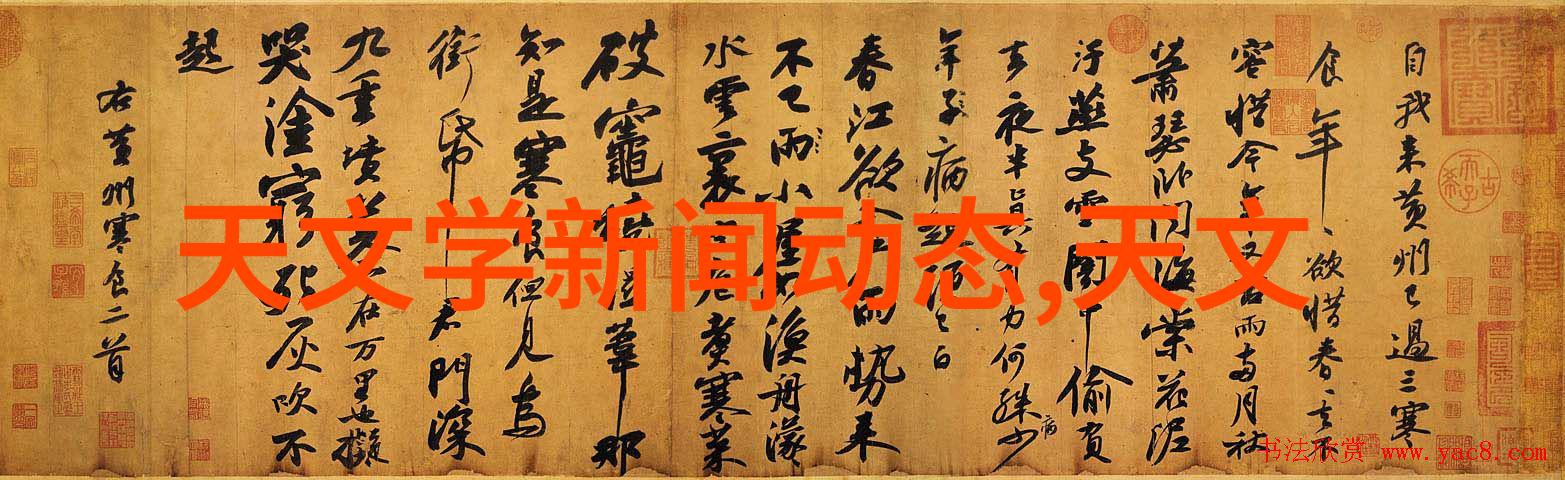 天文学新闻动态,天文
自我来黄州已過三寒
食年〻欲惜春〻去不
容惜今年又苦雨兩月秋
蕭瑟卧聞海棠花泥
汙燕支雪闇中偷負
去夜半真有力何殊少
年子病起頭已白
春江欲入户雨勢来
不已雨小屋如漁舟濛〻
水雲裏空庖煮寒菜
破竈燒濕葦那
知是寒食但見烏
銜帋君門深
九重墳墓在万里也擬
哭塗窮死灰吹不
起
右黄州寒食二首
书法欣赏 www.yac8.com